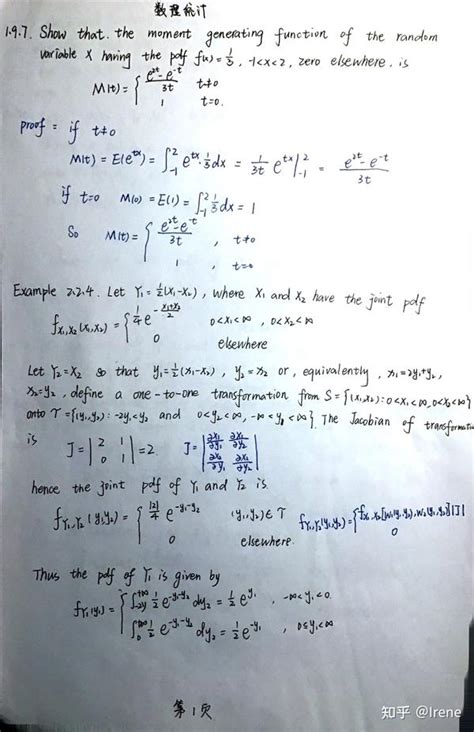 数理统计
1.9.7. Show that the moment generating function of the random
variable X having the pdf f(x) = 1/3, -1<x<2, zero elsewhere, is
M(t) = { (e^{2t} - e^{-t})/3t   t≠0
1   t=0.
proof: if t≠0
M(t) = E(e^{tx}) = ∫_{-1}^{2} e^{tx}·1/3 dx = 1/3t e^{tx}|_{-1}^{2} = (e^{2t} - e^{-t})/3t
if t=0 M(0) = E(1) = ∫_{-1}^{2} 1/3 dx = 1
So M(t) = { (e^{2t} - e^{-t})/3t , t≠0
1 , t=0
Example 2.2.4. Let Y₁ = ½(X₁-X₂), where X₁ and X₂ have the joint pdf
f_{X₁,X₂}(x₁,x₂) = { ¼ e^{-(x₁+x₂)/2}   0<x₁<∞, 0<x₂<∞
0   elsewhere
Let Y₂=X₂ so that y₁=½(x₁-x₂), y₂=x₂ or, equivalently, x₁=2y₁+y₂,
x₂=y₂, define a one-to-one transformation from S={(x₁,x₂): 0<x₁<∞, 0<x₂<∞}
onto T={(y₁,y₂): -2y₁<y₂ and 0<y₂<∞, -∞<y₁<∞}. The Jacobian of transformation
is J = |2 1; 0 1| = 2   J = |∂x₁/∂y₁ ∂x₁/∂y₂; ∂x₂/∂y₁ ∂x₂/∂y₂|
hence the joint pdf of Y₁ and Y₂ is
f_{Y₁,Y₂}(y₁,y₂) = { |2|/4 e^{-y₁-y₂}   (y₁,y₂)∈T   f_{Y₁,Y₂}(y₁,y₂) = { f_{X₁,X₂}[w₁(y₁,y₂),w₂(y₁,y₂)]|J|
0   elsewhere.   0
Thus the pdf of Y₁ is given by
f_{Y₁}(y₁) = { ∫_{-2y₁}^{+∞} ½ e^{-y₁-y₂} dy₂ = ½ e^{y₁} , -∞<y₁<0
∫_{0}^{+∞} ½ e^{-y₁-y₂} dy₂ = ½ e^{-y₁} , 0≤y₁<∞
第1页
知乎 @Irene